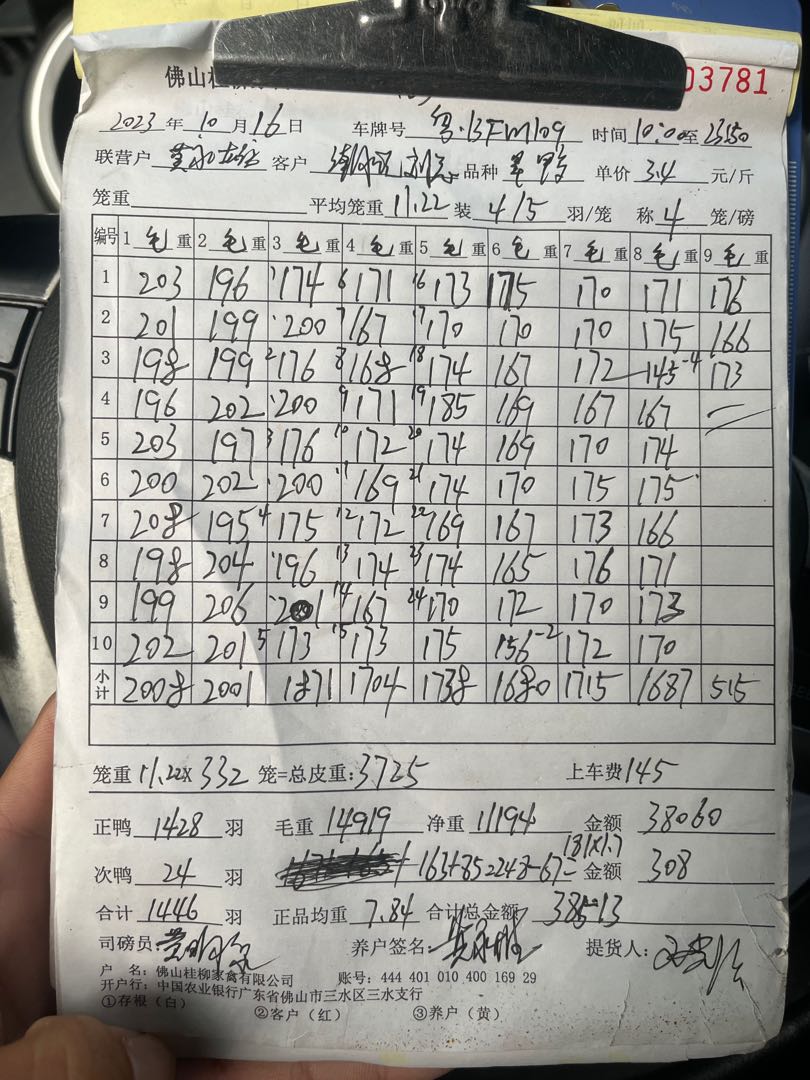 佛山桂柳
03781
2023年10月16日 车牌号 粤·BFM109 时间10:00至23:50
联营户 客户 品种 单价3.4元/斤
笼重 平均笼重11.22装4/5羽/笼 称4笼/磅
编号 1毛重 2毛重 3毛重 4毛重 5毛重 6毛重 7毛重 8毛重 9毛重
1 203 196 174 6 171 16 173 175 170 171 176
2 201 199 200 7 167 17 170 170 170 175 166
3 198 199 2 176 8 168 18 174 167 172 145-4 173
4 196 202 200 9 171 19 185 169 167 167
5 203 197 3 176 10 172 20 174 169 170 174
6 200 202 200 11 169 21 174 170 175 175
7 208 195 4 175 12 172 22 169 167 173 166
8 198 204 196 13 174 23 174 165 176 171
9 199 206 201 14 167 24 170 172 170 173
10 202 201 5 173 15 173 175 156-2 172 170
小计 2008 2001 1871 1704 1738 1680 1715 1687 515
笼重11.22×332笼=总皮重:3725 上车费145
正鸭1428羽 毛重14919 净重11194 金额38060
181×1.7
次鸭24羽 163+85=248-67= 金额308
合计1446羽 正品均重7.84 合计总金额38513
司磅员: 养户签名: 提货人:
户 名:佛山桂柳家禽有限公司 账号:444 401 010 400 169 29
开户行:中国农业银行广东省佛山市三水区三水支行
①存根(白) ②客户(红) ③养户(黄)